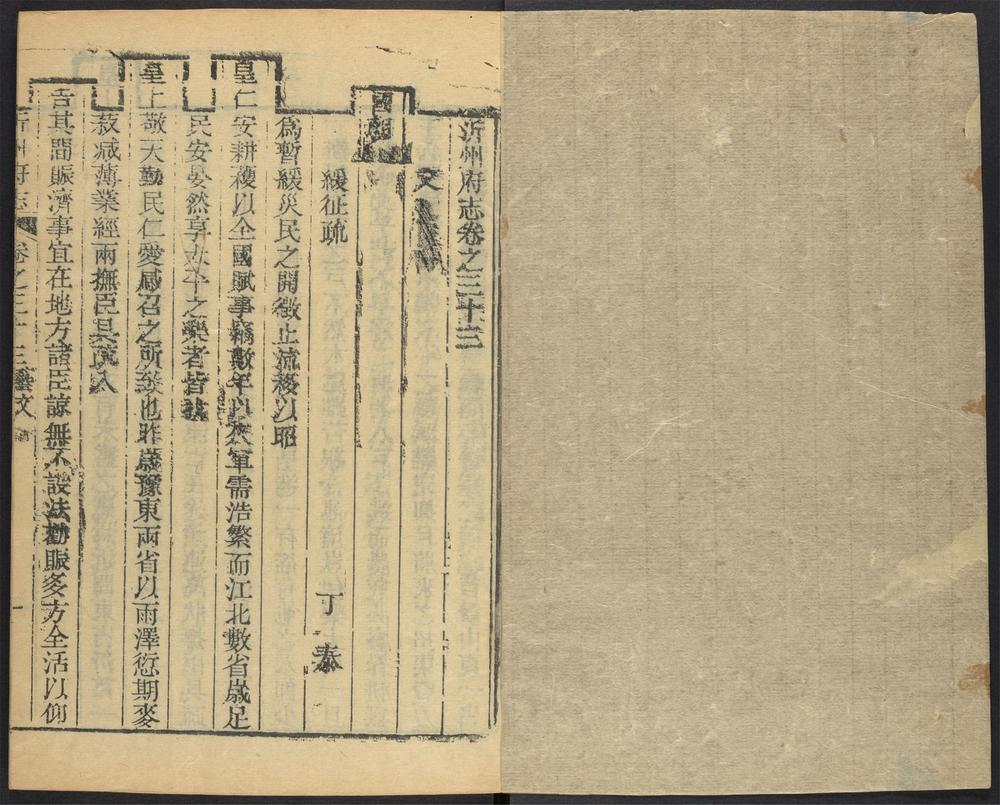 沂州府志卷之三十三
文
國朝
緩征疏　丁泰
爲暫緩災民之開徵止流移以昭
皇仁安耕穫以全國賦事竊數年以來軍需浩繁而江北數省歲足
民安晏然享太平之樂者皆
皇上敬天勤民仁愛感召之所致也昨歲豫東兩省以雨澤愆期麥
菽减薄業經兩撫臣具疏入
告其間賑濟事宜在地方諸臣諒無不設法勸賑多方全活以仰
沂州府志　卷之三十三　藝文　一